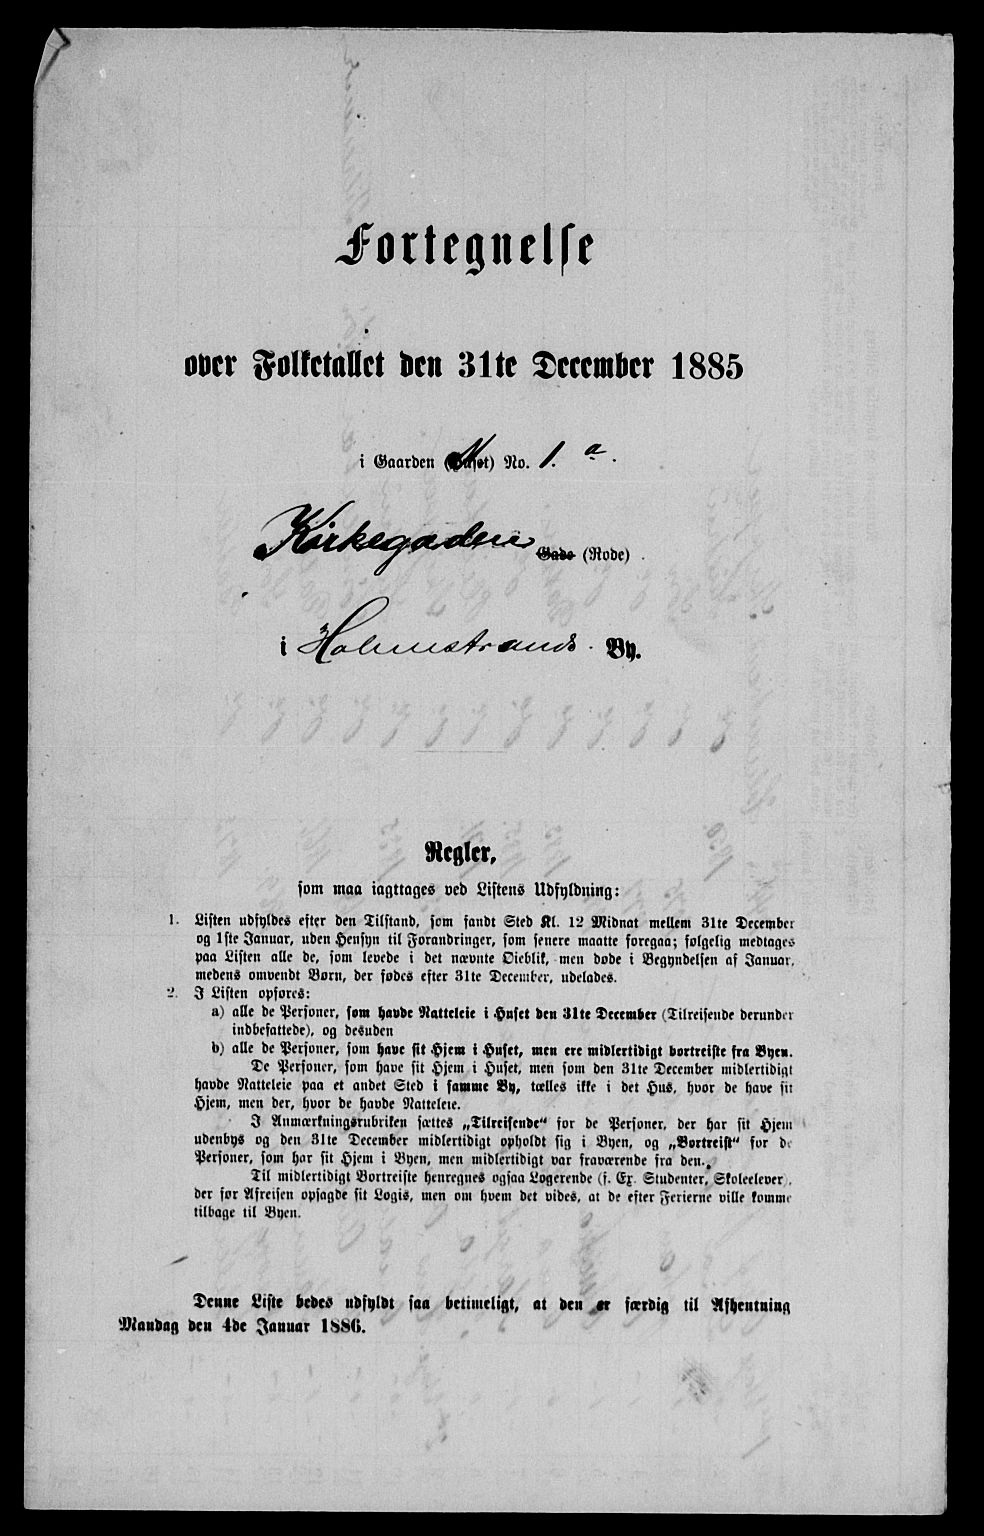 Fortegnelse
over Folketallet den 31te December 1885
i Gaarden (Huset) No. 1. a.
Kirkegaden Gade (Rode)
i Holmestrands By.
Regler,
som maa iagttages ved Listens Udfyldning:
1. Listen udfyldes efter den Tilstand, som fandt Sted Kl. 12 Midnat mellem 31te December
og 1ste Januar, uden Hensyn til Forandringer, som senere maatte foregaa; følgelig medtages
paa Listen alle de, som levede i det nævnte Øieblik, men døde i Begyndelsen af Januar,
medens omvendt Børn, der fødes efter 31te December, udelades.
2. I Listen opføres:
a) alle de Personer, som havde Natteleie i Huset den 31te December (Tilreisende derunder
indbefattede), og desuden
b) alle de Personer, som have sit Hjem i Huset, men ere midlertidigt bortreiste fra Byen.
De Personer, som have sit Hjem i Huset, men som den 31te December midlertidigt
havde Natteleie paa et andet Sted i samme By, tælles ikke i det Hus, hvor de have sit
Hjem, men der, hvor de havde Natteleie.
I Anmærkningsrubriken sættes „Tilreisende“ for de Personer, der har sit Hjem
udenbys og den 31te December midlertidigt opholdt sig i Byen, og „Bortreist“ for de
Personer, som har sit Hjem i Byen, men midlertidigt var fraværende fra den.
Til midlertidigt Bortreiste henregnes ogsaa Logerende (f. Ex. Studenter, Skoleelever),
der før Afreisen opsagde sit Logis, men om hvem det vides, at de efter Ferierne ville komme
tilbage til Byen.
Denne Liste bedes udfyldt saa betimeligt, at den er færdig til Afhentning
Mandag den 4de Januar 1886.